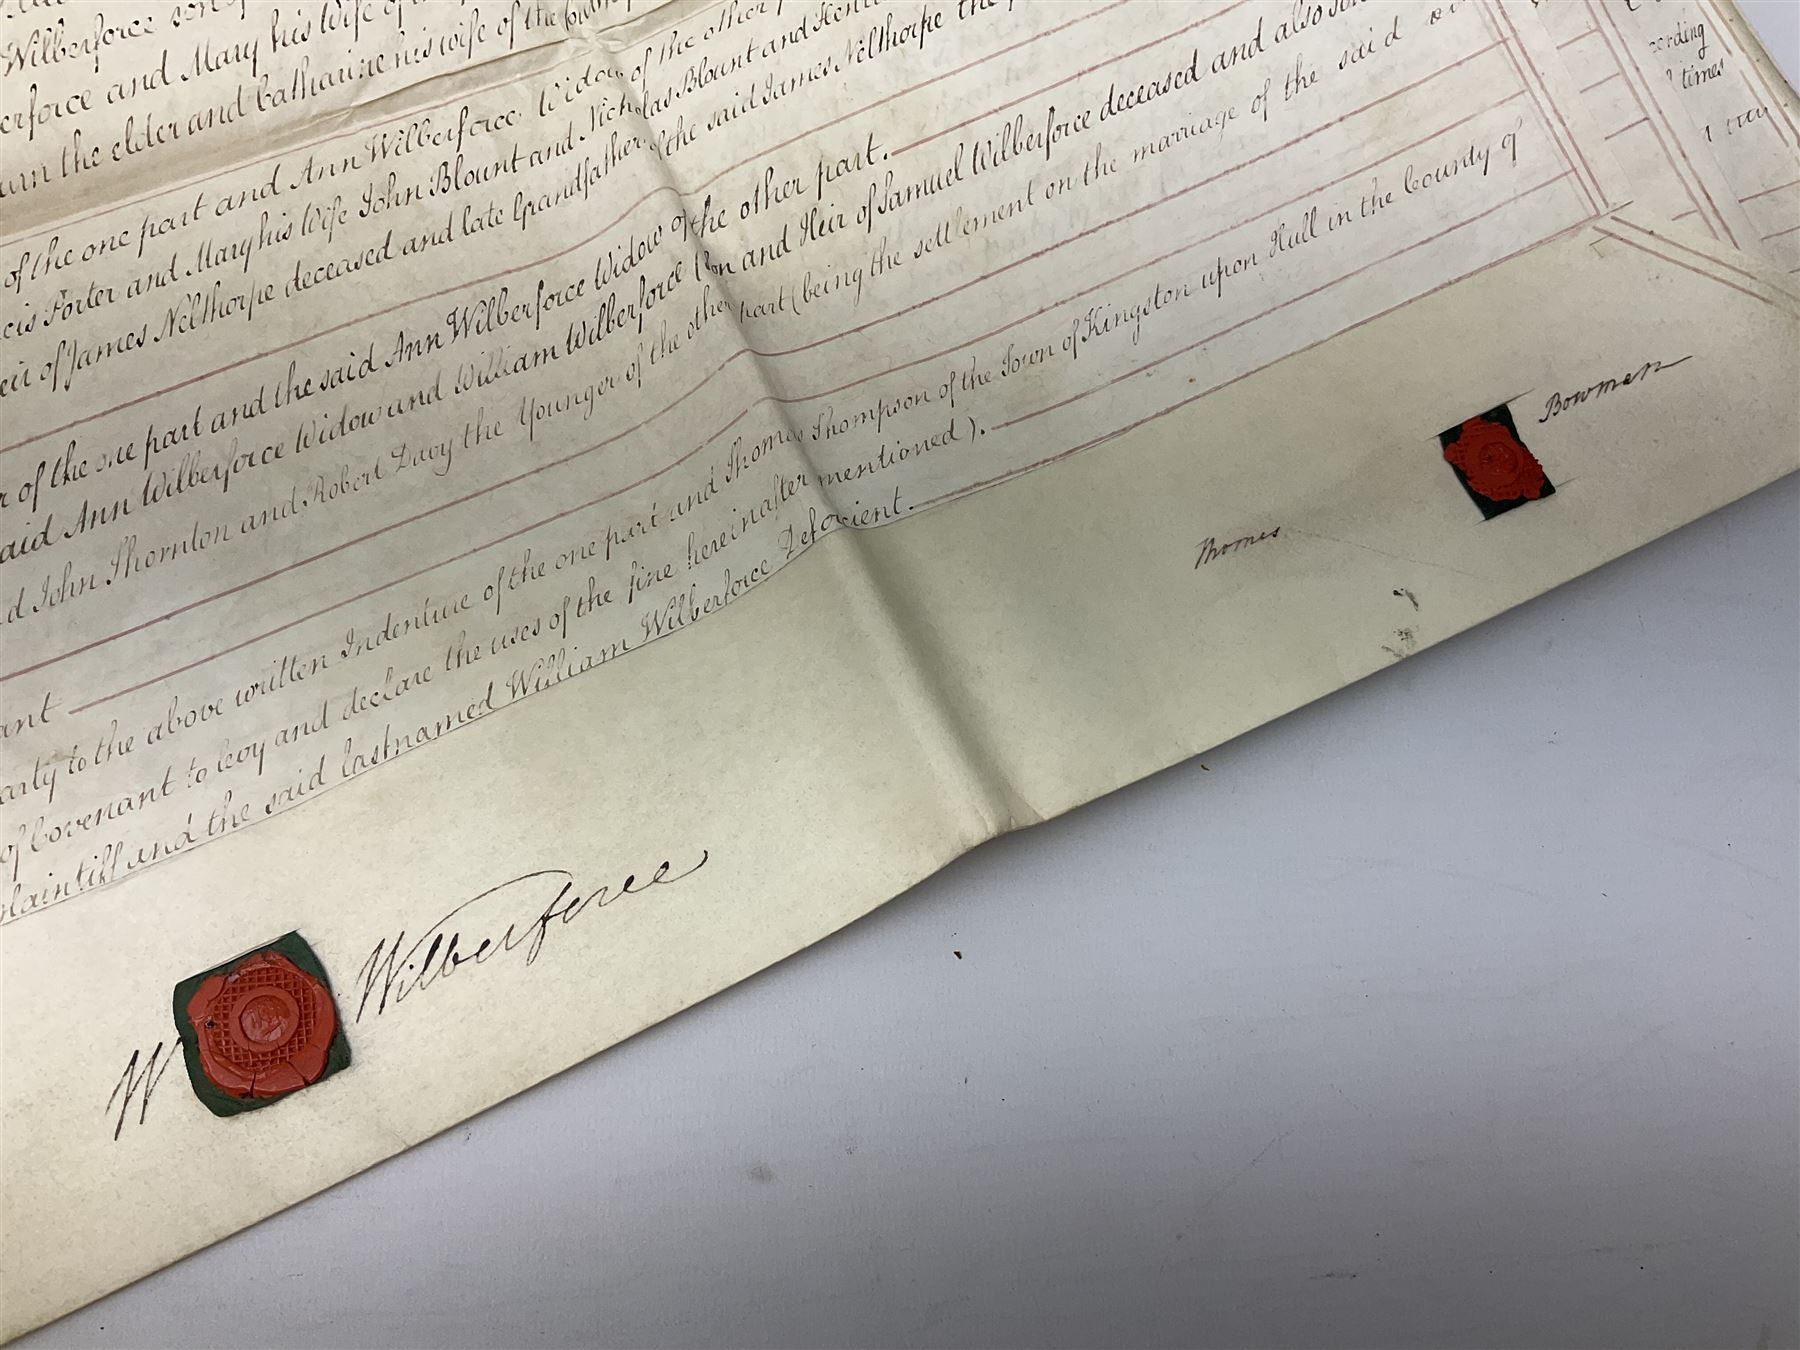 Wilberforce son of
erforce and Mary his Wife of
urn the elder and Catharine his wife of the County
of the one part and Ann Wilberforce Widow of the other
cis Porter and Mary his Wife John Blount and Nicholas Blount and Henri
eir of James Nelthorpe deceased and late Grandfather of the said James Nelthorpe the
r of the one part and the said Ann Wilberforce Widow of the other part.
aid Ann Wilberforce Widow and William Wilberforce Son and Heir of Samuel Wilberforce deceased and also
d John Thornton and Robert Davy the Younger of the other part (being the settlement on the marriage of the said
ant
arty to the above written Indenture of the one part and Thomas Thompson of the Town of Kingston upon Hull in the County of
of Covenant to levy and declare the uses of the fine hereinafter mentioned).
laintiff and the said lastnamed William Wilberforce Deforcient.
cording
times
W Wilberforce
Thomas Bowman